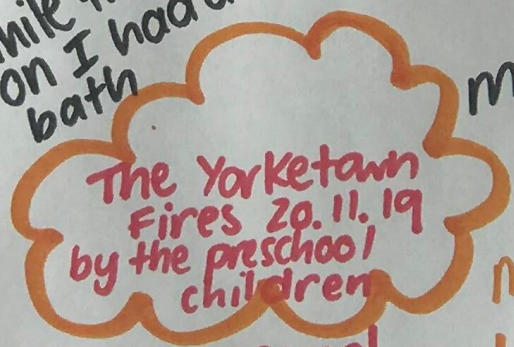 on I had a
bath
The Yorketown
Fires 20.11.19
by the preschool
children